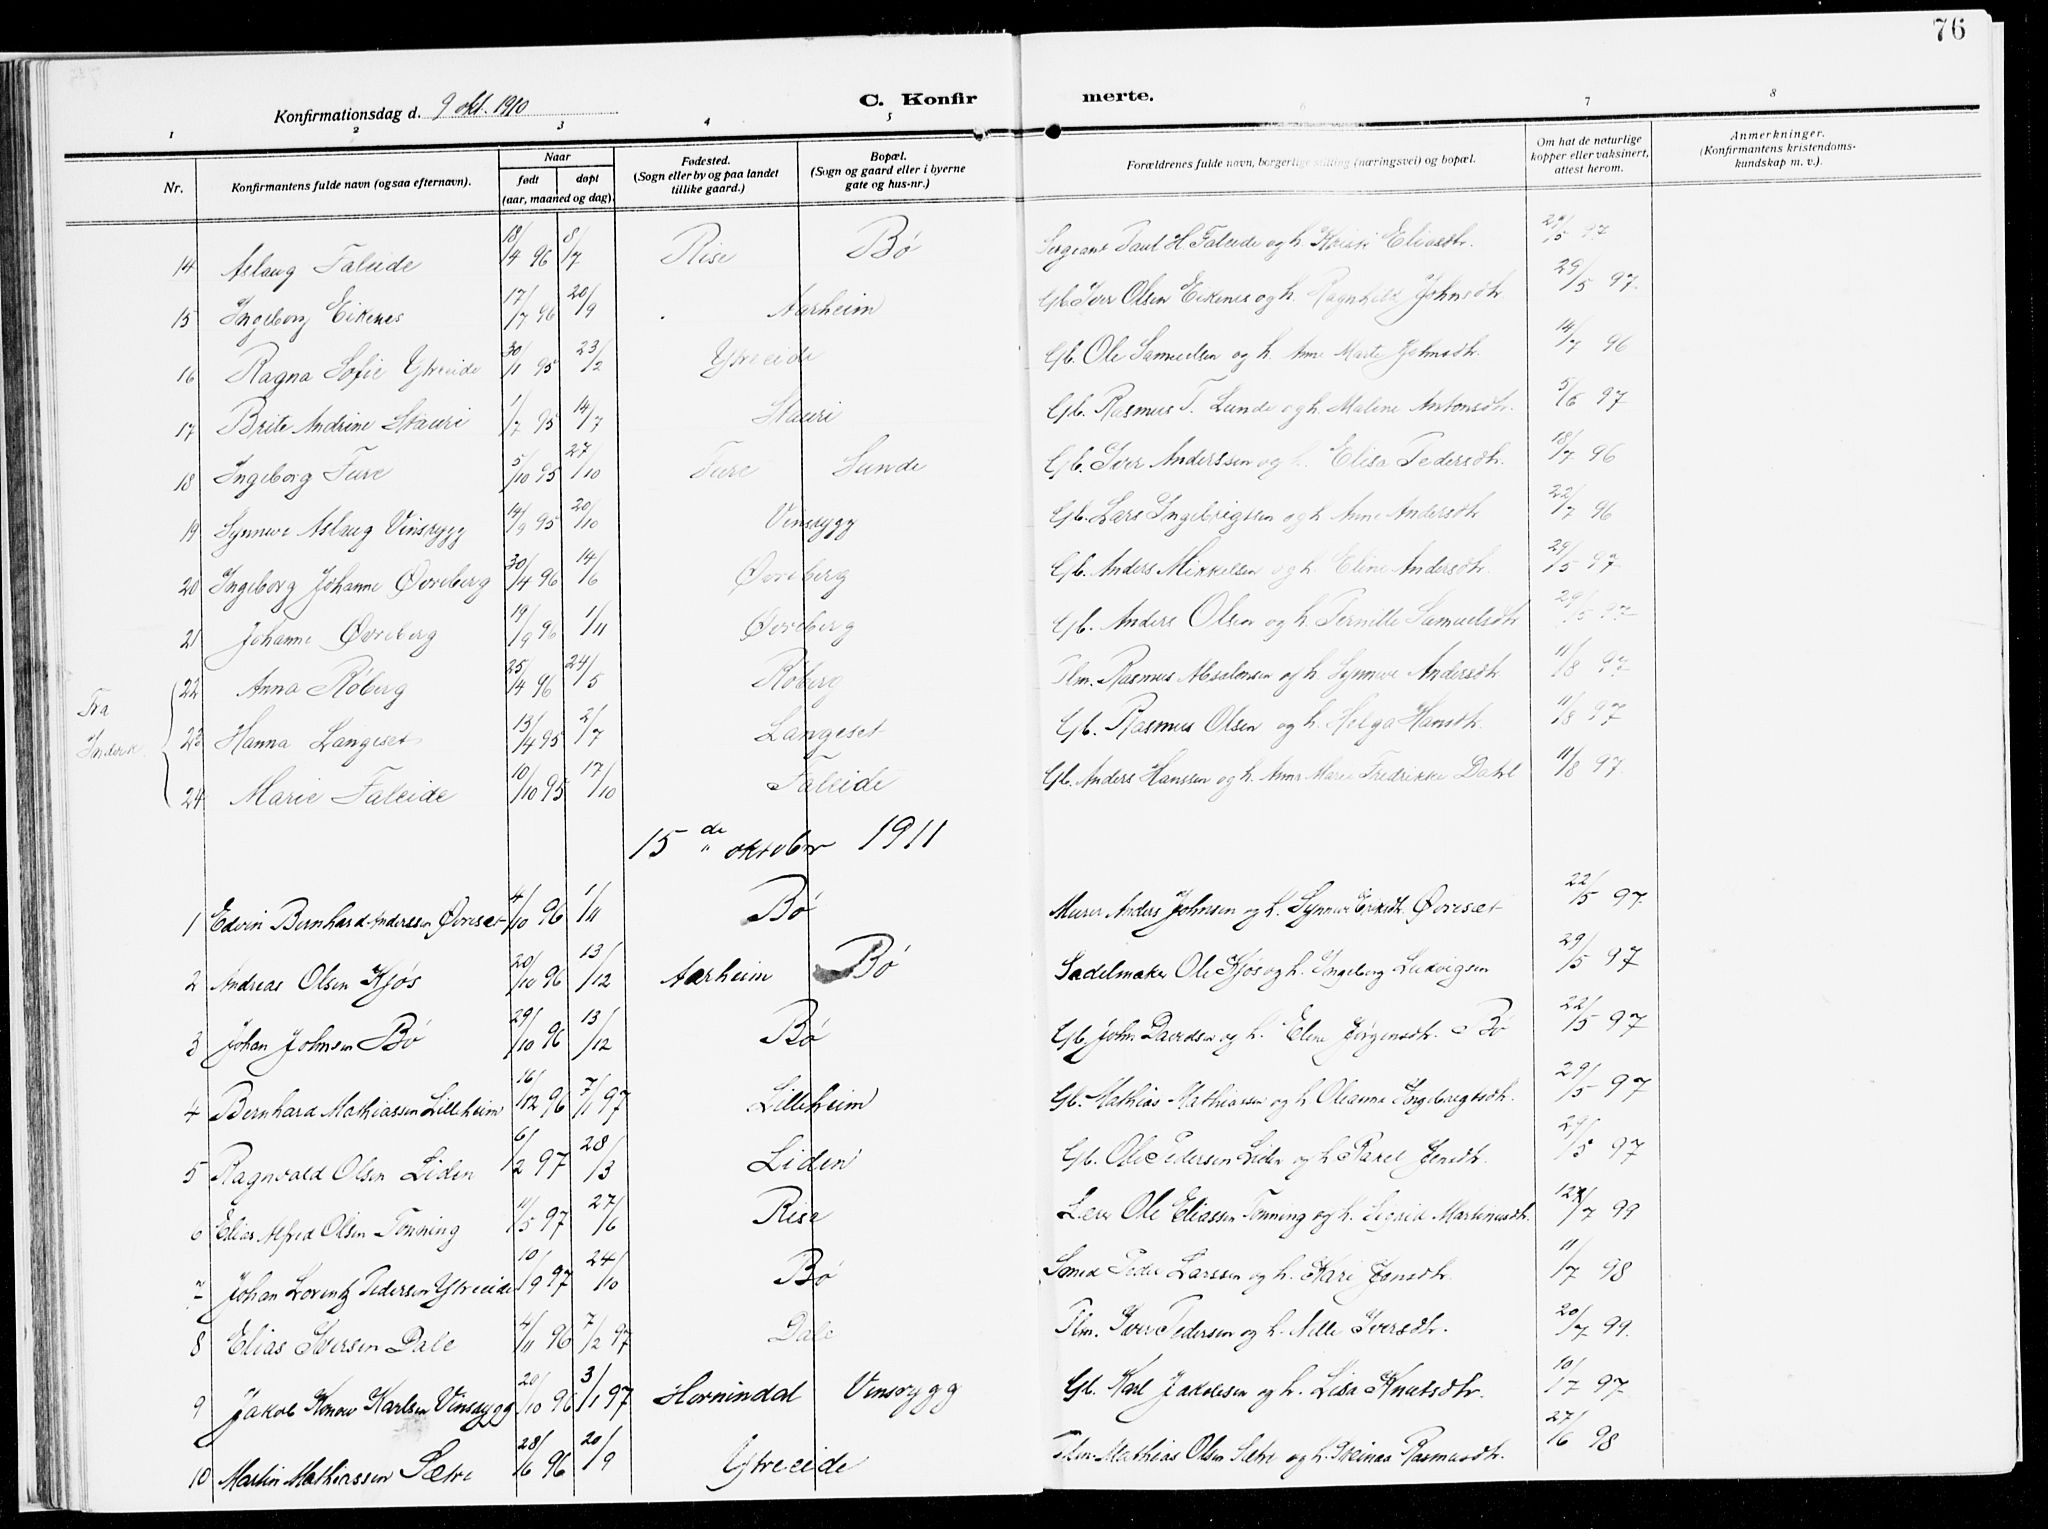 76
Konfirmationsdag d. 9 okt. 1910
C. Konfirmerte.
1 2 3 4 5 6 7 8
Nr.
Konfirmantens fulde navn (ogsaa efternavn).
Naar
født døpt
(aar, maaned og dag).
Fødested.
(Sogn eller by og paa landet
tillike gaard.)
Bopæl.
(Sogn og gaard eller i byerne
gate og hus-nr.)
Forældrenes fulde navn, borgerlige stilling (næringsvei) og bopæl.
Om hat de naturlige
kopper eller vaksinert,
attest herom.
Anmerkninger.
(Konfirmantens kristendoms-
kundskap m. v.).
14 Aslaug Faleide 18/4 96 8/7 Rise Bø Sergeant Paul H. Faleide og h. Eliasdtr. 29/5 97
15 Ingeborg Eikenes 17/7 96 20/9 Aarheim Gb. Iver Olsen Eikenes og h. Ragnhild Johnsdtr. 29/5 97.
16 Ragna Sofie Ytreeide 30/1 95 23/2 Ytreeide Gb. Ole Samuelsen og h. Anne Marte Johnsdtr. 14/7 96
17 Brite Andrine Stauri 1/7 95 14/7 Stauri Gb. Rasmus T. Lunde og h. Malene Antonsdtr. 5/6 97
18 Ingeborg Fure 5/10 95 27/10 Fure Sunde Gb. Iver Anderssen og h. Elisa Pedersdtr. 18/7 96
19 Synneve Aslaug Vinsrygg 14/9 95 20/10 Vinsrygg Gb. Lars Ingebrigtsen og h. Anne Andersdtr 22/7 96
20 Ingeborg Johanne Øvreberg 30/4 96 14/6 Øvreberg Gb. Anders Mikkelsen og h. Eline Andersdtr. 29/5 97
21 Johanne Øvreberg 19/9 96 1/11 Øvreberg Gb. Anders Olsen og h. Pernille Samuelsdtr 29/5 97
Fra
22 Anna Roberg 25/4 96 24/5 Roberg Plm. Rasmus Absalonsen og h. Synneve Andersdtr. 11/8 97
23 Hanna Langeset 13/4 95 2/7 Langeset Gb. Rasmus Olsen og h. Helga Hansdtr. 11/8 97
24 Marie Faleide 10/10 95 17/10 Faleide Gb. Anders Hanssen og h. Anne Marie Fredrikke Dahl 11/8 97
15 de oktober 1911
1 Edvin Bernhard Anderssen Øvreset 4/10 96 1/11 Bø Murer Anders Johnsen og h. Synneve Eriksdtr. Øvreset 22/5 97
2 Andreas Olsen Kjøs 20/10 96 13/12 Aarheim Bø Sadelmaker Ole Kjøs og h. Ingeborg Ludvigsen 29/5 97
3 Johan Johnsen Bø 29/10 96 13/12 Bø Gb. John Davidsen og h. Eline Jørgensdtr. Bø 22/5 97
4 Bernhard Mathiassen Lilleheim 16/12 96 7/1 97 Lilleheim Gb. Mathias Mathiassen og h. Oleanna Ingebrigtsdtr. 29/5 97
5 Ragnvald Olsen Liden 6/2 97 28/3 Liden Gb. Ole Pedersen Liden og h. Rakel Jensdtr. 29/5 97
6 Elias Alfred Olsen Tonning 11/5 97 27/6 Rise Lærer Ole Eliassen Tonning og h. Sigrid Martinusdtr. 12/7 99
7 Johan Lorentz Pedersen Ytreeide 10/9 97 24/10 Bø Smed Peder Larssen og h. Kari Jonsdtr. 11/7 98
8 Elias Iversen Dale 4/11 96 7/2 97 Dale Plm. Iver Pedersen og h. Nille Iversdtr. 20/7 99.
9 Jakob Konow Karlsen Vinsrygg 20/10 96 3/1 97 Hornindal Vinsrygg Gb. Karl Jakobsen og h. Lisa Knutsdtr. 10/7 97
10 Martin Mathiassen Sætre 28/6 96 20/9 Ytreeide Plm. Mathias Olsen Sætre og h. Rasmusdtr. 27/6 98